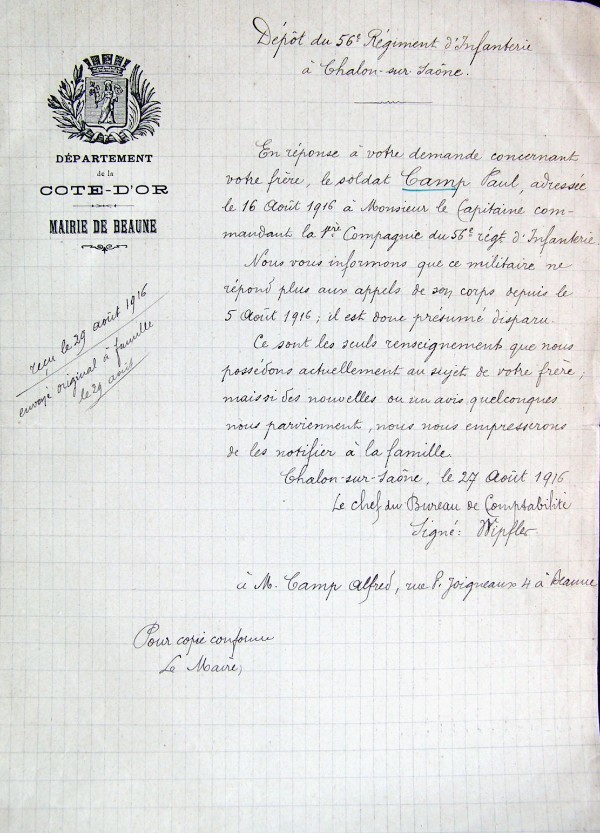 Dépôt du 56e Régiment d'Infanterie
à Chalon-sur-Saône.
DÉPARTEMENT
de la
COTE-D'OR
MAIRIE DE BEAUNE
reçu le 29 août 1916
envoyé original à famille
le 29 août
En réponse à votre demande concernant
votre frère, le soldat Camp Paul, adressée
le 16 Août 1916 à Monsieur le Capitaine com-
mandant la 1ère Compagnie du 56e régt d'Infanterie.
Nous vous informons que ce militaire ne
répond plus aux appels de son corps depuis le
5 Août 1916; il est donc présumé disparu.
Ce sont les seuls renseignement que nous
possédons actuellement au sujet de votre frère,
mais si des nouvelles ou un avis quelconques
nous parviennent, nous nous empresserons
de les notifier à la famille.
Chalon-sur-Saône, le 27 Août 1916
Le chef du Bureau de Comptabilité
Signé: Wipfler.
à M. Camp Alfred, rue P. Joigneaux 4 à Beaune
Pour copie conforme
Le Maire,